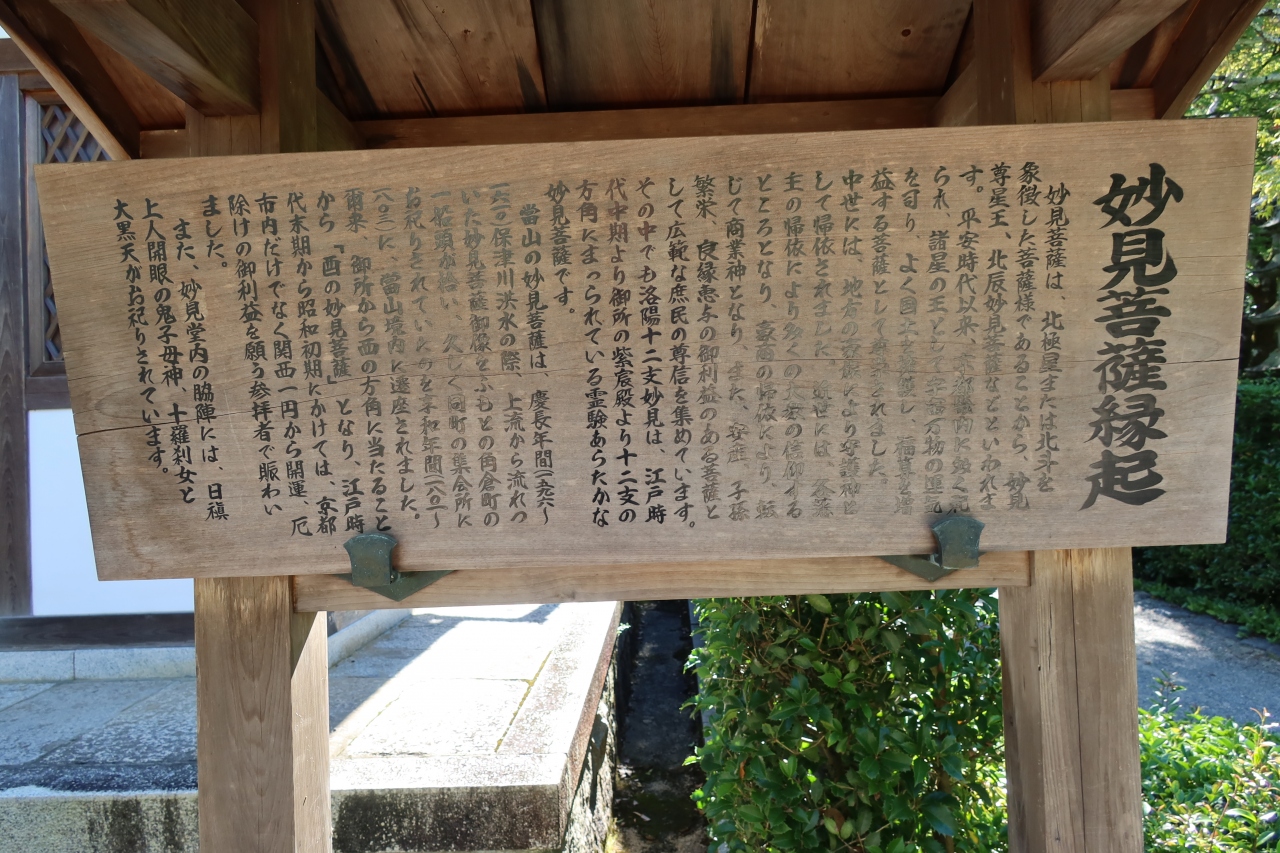 妙見菩薩縁起
妙見菩薩は、北極星または北斗を
象徴した菩薩様であることから、妙見
尊星王、北辰妙見菩薩などといわれま
す。平安時代以来、
られ、諸星の王として宇宙万物の運気
を司り、よく国土を し、福寿を増
益する菩薩として されました。
中世には、地方の豪族により守護神と
して帰依されました。近世には、
主の帰依により多くの大衆の信仰する
ところとなり、豪商の帰依により、転
じて商業神となり、また、安産、子孫
繁栄、良縁恵与の御利益のある菩薩と
して広範な庶民の尊信を集めています。
その中でも洛陽十二支妙見は、江戸時
代中期より御所の紫宸殿より十二支の
方角にまつられている霊験あらたかな
妙見菩薩です。
當山の妙見菩薩は、慶長年間(一五九六〜
一六一五)保津川洪水の際、上流から流れつ
いた妙見菩薩御像をふもとの角倉町の
一船頭が拾い、久しく同町の集会所に
お祀りされていたものを享和年間(一八〇一〜
一八〇三)に、當山境内に遷座されました。
爾来、御所から酉の方角に当たること
から「酉の妙見菩薩」となり、江戸時
代末期から昭和初期にかけては、京都
市内だけでなく関西一円から開運 厄
除けの御利益を願う参拝者で賑わい
ました。
また、妙見堂内の脇陣には、日禛
上人開眼の鬼子母神、十羅刹女と
大黒天がお祀りされています。